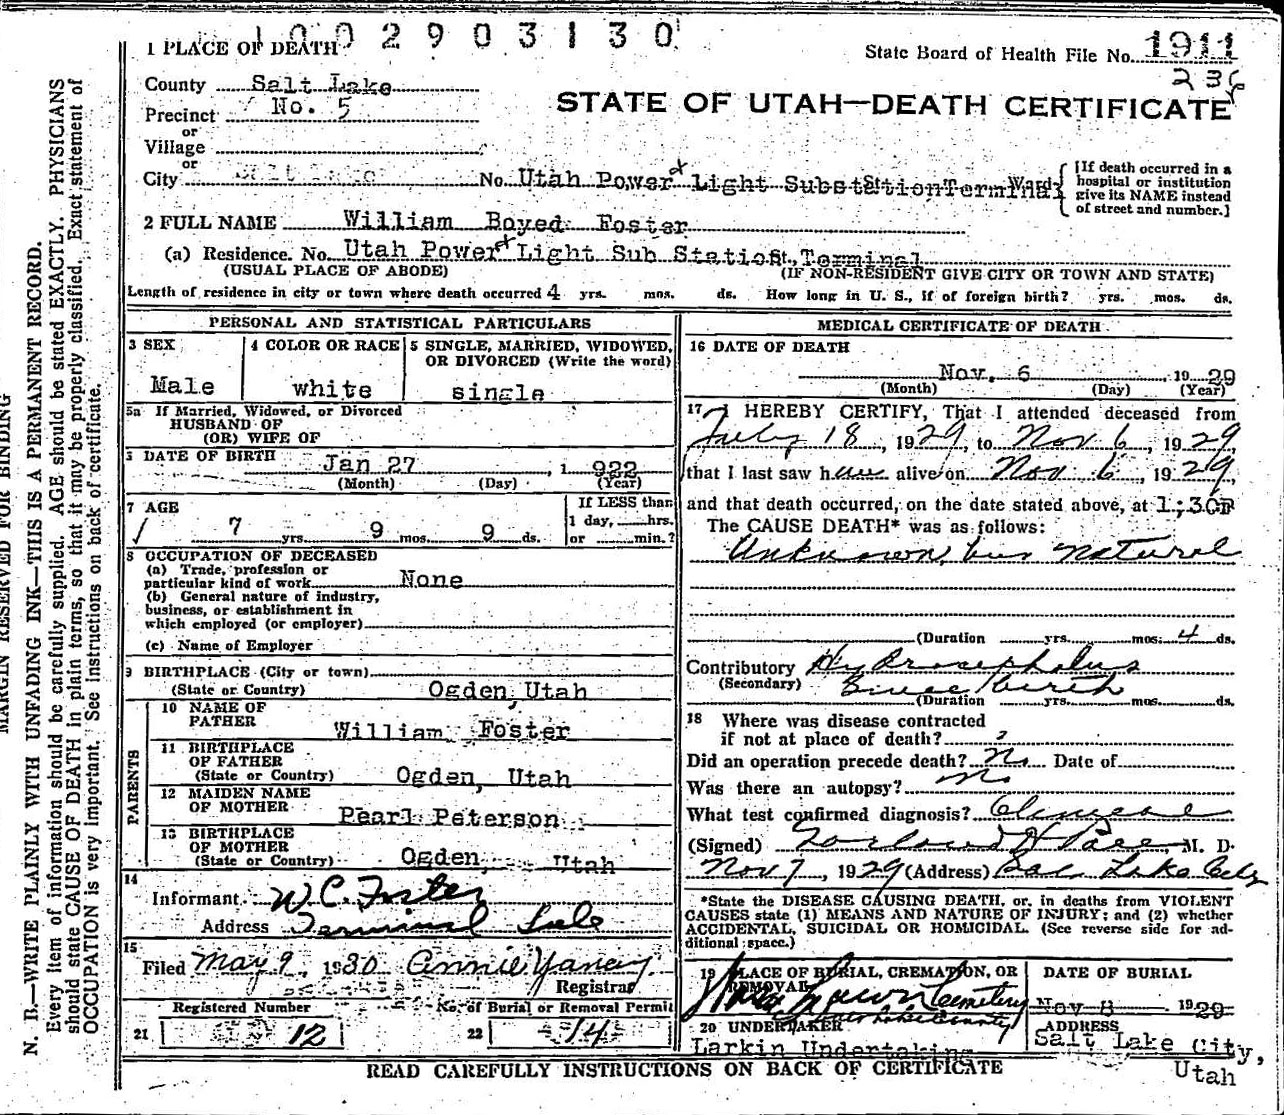 1002903130
1 PLACE OF DEATH
State Board of Health File No. 1911
236
County Salt Lake
Precinct No. 5
STATE OF UTAH—DEATH CERTIFICATE
or
Village
or
City Salt Lake No. Utah Power & Light Substation Terminal Ward
[If death occurred in a
hospital or institution
give its NAME instead
of street and number.]
2 FULL NAME William Boyed Foster
(a) Residence. No. Utah Power & Light Sub Station St., Terminal
(USUAL PLACE OF ABODE) (IF NON-RESIDENT GIVE CITY OR TOWN AND STATE)
Length of residence in city or town where death occurred 4 yrs. mos. ds. How long in U. S., if of foreign birth? yrs. mos. ds.
PERSONAL AND STATISTICAL PARTICULARS
3 SEX
Male
4 COLOR OR RACE
white
5 SINGLE, MARRIED, WIDOWED,
OR DIVORCED (Write the word)
single
5a If Married, Widowed, or Divorced
HUSBAND OF
(OR) WIFE OF
DATE OF BIRTH Jan 27, 1 922
(Month) (Day) (Year)
7 AGE
7 yrs. 9 mos. 9 ds.
If LESS than
1 day, hrs.
or min.?
8 OCCUPATION OF DECEASED
(a) Trade, profession or
particular kind of work None
(b) General nature of industry,
business, or establishment in
which employed (or employer)
(c) Name of Employer
9 BIRTHPLACE (City or town)
(State or Country) Ogden, Utah
PARENTS
10 NAME OF
FATHER William Foster
11 BIRTHPLACE
OF FATHER
(State or Country) Ogden, Utah
12 MAIDEN NAME
OF MOTHER Pearl Peterson
13 BIRTHPLACE
OF MOTHER
(State or Country) Ogden, Utah
14
Informant W. C. Foster
Address Terminal
15
Filed May 9, 1930 Annie Yancy
Registrar
Registered Number
21 12
No. of Burial or Removal Permit
22 14
MEDICAL CERTIFICATE OF DEATH
16 DATE OF DEATH
Nov. 6 1929
(Month) (Day) (Year)
17 I HEREBY CERTIFY, That I attended deceased from
July 18, 1929, to Nov 6, 1929,
that I last saw h alive on Nov 6, 1929,
and that death occurred, on the date stated above, at 1;30P
The CAUSE DEATH* was as follows:
Unknown, but natural
(Duration yrs. mos. 4 ds.
Contributory Hydrocephalus
(Secondary) Since birth
(Duration yrs. mos. ds.
18 Where was disease contracted
if not at place of death? ?
Did an operation precede death? No Date of
Was there an autopsy? No
What test confirmed diagnosis? Clinical
(Signed) H Pace, M. D.
Nov 7, 1929 (Address) Salt Lake City
*State the DISEASE CAUSING DEATH, or, in deaths from VIOLENT
CAUSES state (1) MEANS AND NATURE OF INJURY; and (2) whether
ACCIDENTAL, SUICIDAL OR HOMICIDAL. (See reverse side for ad-
ditional space.)
19 PLACE OF BURIAL, CREMATION, OR
REMOVAL
Lawn Cemetery
Salt Lake County
DATE OF BURIAL
Nov 8 1929
20 UNDERTAKER
Larkin Undertaking
ADDRESS
Salt Lake City,
Utah
READ CAREFULLY INSTRUCTIONS ON BACK OF CERTIFICATE
MARGIN RESERVED FOR BINDING
N. B.—WRITE PLAINLY WITH UNFADING INK—THIS IS A PERMANENT RECORD.
Every item of information should be carefully supplied. AGE should be stated EXACTLY. PHYSICIANS
should state CAUSE OF DEATH in plain terms, so that it may be properly classified. Exact statement of
OCCUPATION is very important. See instructions on back of certificate.